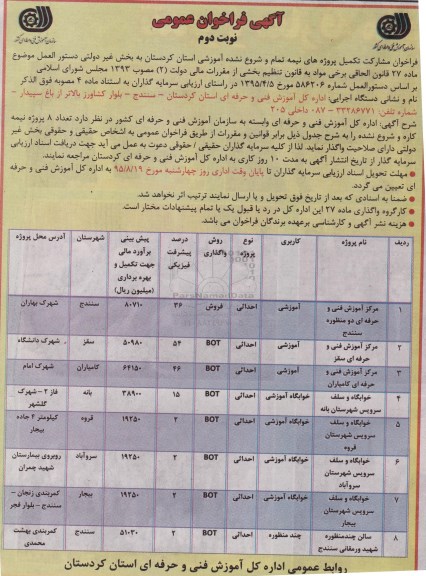 آگهی فراخوان عمومی
نوبت دوم
فراخوان مشارکت تکمیل پروژه های نیمه تمام و شروع نشده آموزشی استان کردستان به بخش غیر دولتی دستور العمل موضوع
ماده ۲۷ قانون الحاقی برخی مواد به قانون تنظیم بخشی از مقررات مالی دولت (۲) مصوب ۱۳۹۳ مجلس شورای اسلامی
بر اساس دستورالعمل شماره ۵۸۶۲۰۶ مورخ ۱۳۹۵/۴/۵ در راستای ارزیابی سرمایه گذاران به استناد ماده ۴ مصوبه فوق الذکر
نام و نشانی دستگاه اجرایی: اداره کل آموزش فنی و حرفه ای استان کردستان – سنندج – بلوار کشاورز بالاتر از باغ سپیدار –
شماره تلفن: ۳۳۲۸۶۷۷۱ – ۰۸۷ داخلی ۲۰۵
شرح آگهی: اداره کل آموزش فنی و حرفه ای وابسته به سازمان آموزش فنی و حرفه ای کشور در نظر دارد تعداد ۸ پروژه نیمه
کاره و شروع نشده را به شرح جدول ذیل برابر قوانین و مقررات از طریق فراخوان عمومی به اشخاص حقیقی و حقوقی بخش غیر
دولتی دارای صلاحیت واگذار نماید. لذا از کلیه سرمایه گذاران حقیقی / حقوقی دعوت به عمل می آید جهت دریافت اسناد ارزیابی
سرمایه گذار از تاریخ انتشار آگهی به مدت ۱۰ روز کاری به اداره کل آموزش فنی و حرفه ای کردستان مراجعه نمایند.
• مهلت تحویل اسناد ارزیابی سرمایه گذاران تا پایان وقت اداری روز چهارشنبه مورخ ۹۵/۸/۱۹ به اداره کل آموزش فنی و حرفه
ای تعیین می گردد.
• ضمنا به اسنادی که بعد از تاریخ فوق تحویل و یا ارسال نمایند ترتیب اثر نخواهد شد.
• کارگروه واگذاری ماده ۲۷ این اداره کل در رد یا قبول یک یا تمام پیشنهادات مختار است.
• هزینه نشر آگهی و کارشناسی برعهده برندگان فراخوان می باشد.
ردیف | نام پروژه | کاربری | نوع پروژه | روش واگذاری | درصد پیشرفت فیزیکی | پیش بینی برآورد مالی جهت تکمیل و بهره برداری (میلیون ریال) | شهرستان | آدرس محل پروژه
۱ | مرکز آموزش فنی و حرفه ای دو منظوره سنندج | آموزشی | احداثی | فروش | ۳۶ | ۸۰۷۱۰ | سنندج | شهرک بهاران
۲ | مرکز آموزش فنی و حرفه ای سقز | آموزشی | احداثی | BOT | ۵۴ | ۵۰۹۸۰ | سقز | شهرک دانشگاه
۳ | مرکز آموزش فنی و حرفه ای کامیاران | آموزشی | احداثی | BOT | ۴۶ | ۶۴۱۵۰ | کامیاران | شهرک امام
۴ | خوابگاه و سلف سرویس شهرستان بانه | خوابگاه آموزشی | احداثی | BOT | ۱۵ | ۳۸۹۰۰ | بانه | فاز ۲ – شهرک گلشهر
۵ | خوابگاه و سلف سرویس شهرستان قروه | خوابگاه آموزشی | احداثی | BOT | ۲ | ۱۹۲۵۰ | قروه | کیلومتر ۴ جاده بیجار
۶ | خوابگاه و سلف سرویس شهرستان سروآباد | خوابگاه آموزشی | احداثی | BOT | ۲ | ۱۹۲۵۰ | سروآباد | روبروی بیمارستان شهید چمران
۷ | خوابگاه و سلف سرویس شهرستان بیجار | خوابگاه آموزشی | احداثی | BOT | ۲ | ۱۹۲۵۰ | بیجار | کمربندی زنجان – سنندج – بلوار فجر
۸ | سالن چندمنظوره شهید ورمقانی سنندج | چند منظوره | احداثی | BOT | ۲ | ۵۱۰۳۰ | سنندج | کمربندی بهشت محمدی
روابط عمومی اداره کل آموزش فنی و حرفه ای استان کردستان